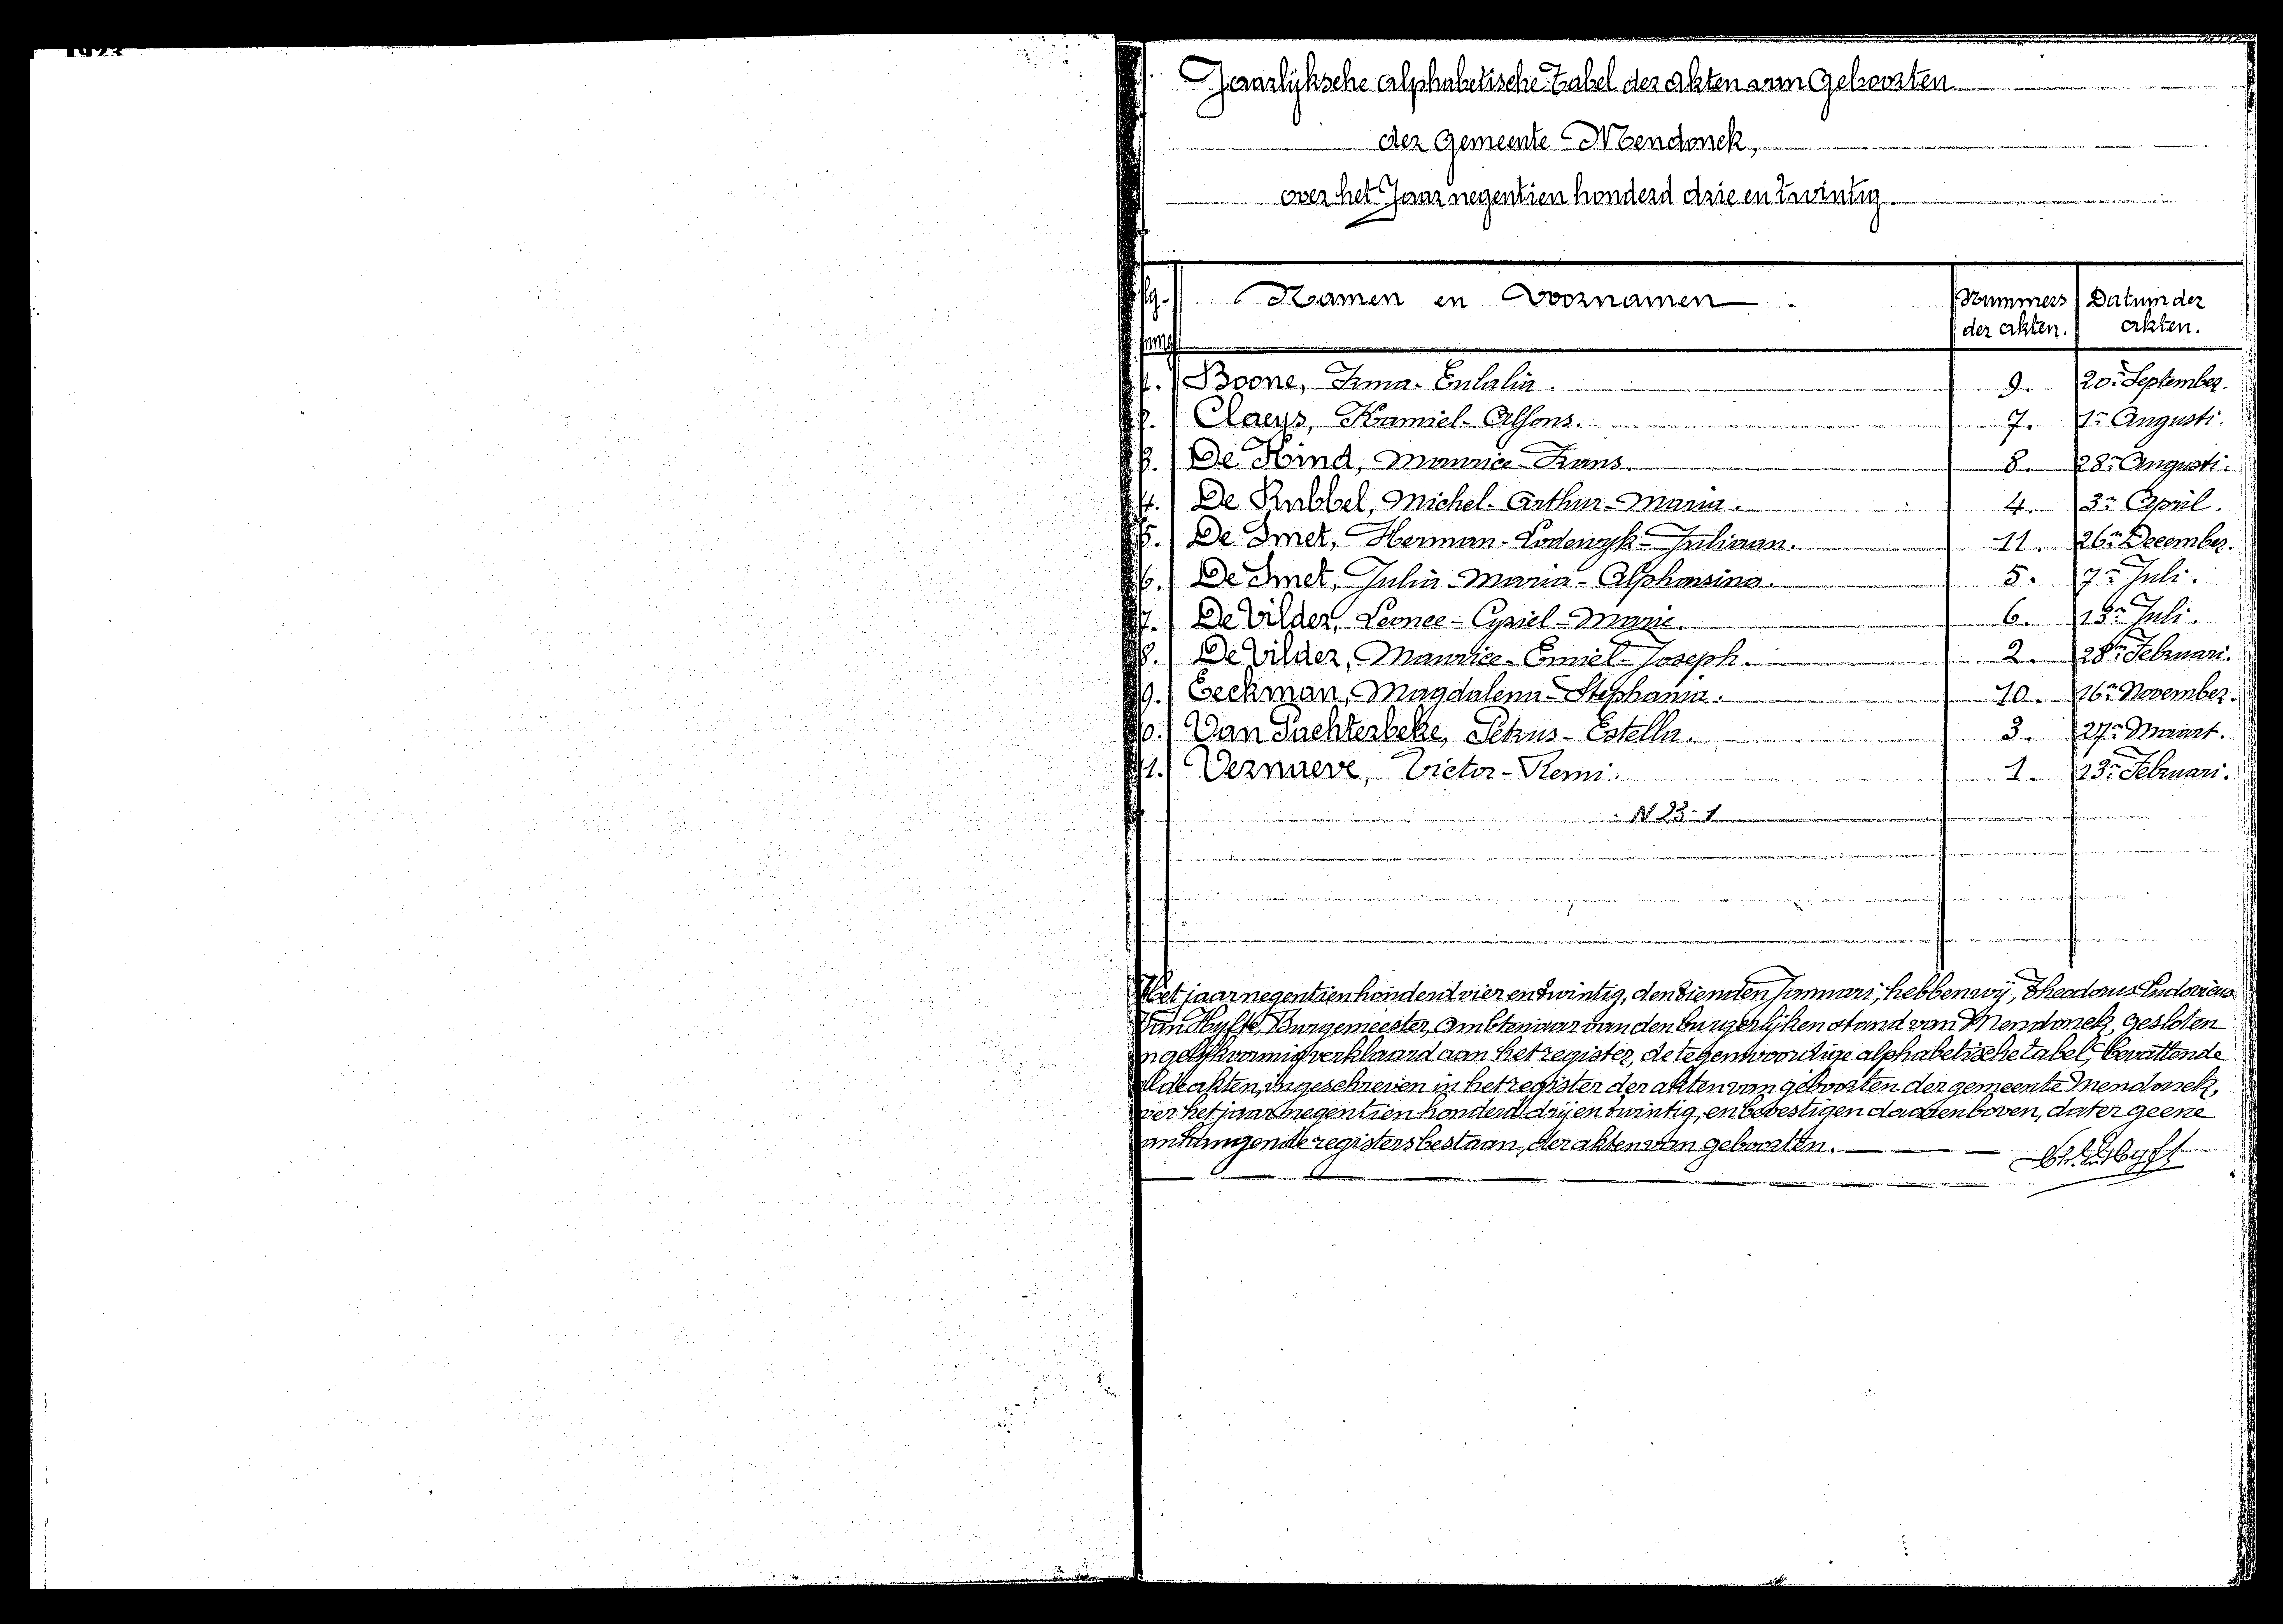 1923
Jaarlijksche alphabetische tabel der akten van Geboorten
der Gemeente Mendonck,
over het Jaar negentien honderd drie en twintig.
Namen en Voornamen. Nummers der akten. Datum der akten.
1. Boone, Irma-Eulalia. 9. 20n September.
2. Claeys, Kamiel-Alfons. 7. 1n Augusti.
3. De Kind, Maurice-Frans. 8. 28n Augusti.
4. De Rubbel, Michel-Arthur-Maria. 4. 3n April.
5. De Smet, Herman-Lodewyk-Juliaan. 11. 26n December.
6. De Smet, Julia-Maria-Alphonsina. 5. 7n Juli.
7. De Vilder, Leonce-Cyriel-Marie. 6. 13n Juli.
8. De Vilder, Maurice-Emiel-Joseph. 2. 28n Februari.
9. Eeckman, Magdalena-Stephania. 10. 16n November.
10. Van Puchterbeke, Petrus-Estella. 3. 27n Maart.
11. Vernaeve, Victor-Remi. 1. 13n Februari.
N 23-1
Het jaar negentien honderd vier en twintig, den tienden Januari, hebben wij, Theodorus Ludovicus
Van Hyfte, Burgemeester, Ambtenaar van den burgerlijken stand van Mendonck, gesloten
en gelijkvormig verklaard aan het register, de tegenwoordige alphabetische tabel, bevattende
al de akten, ingeschreven in het register der akten van geboorten der gemeente Mendonck,
over het jaar negentien honderd drij en twintig, en bevestigen daarenboven, dat er geene
aanhangende registers bestaan, der akten van geboorten.